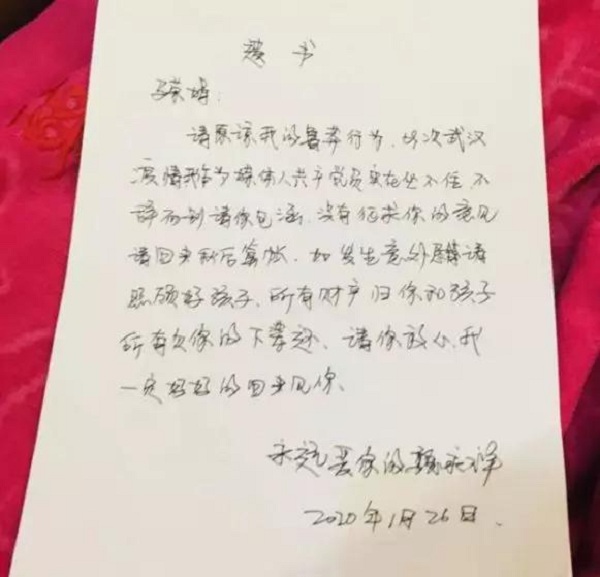 遗书
请原谅我的鲁莽行为，此次武汉
疫情我作为媒体人共产党员实在坐不住，不
辞而别请你包涵，没有征求你的意见
请回来秋后算帐．如发生意外请
照顾好孩子，所有财产归你和孩子
所有欠你的下辈还．请你放心，我
一定好好的回来见你．
永远爱你的
2020年1月26日．